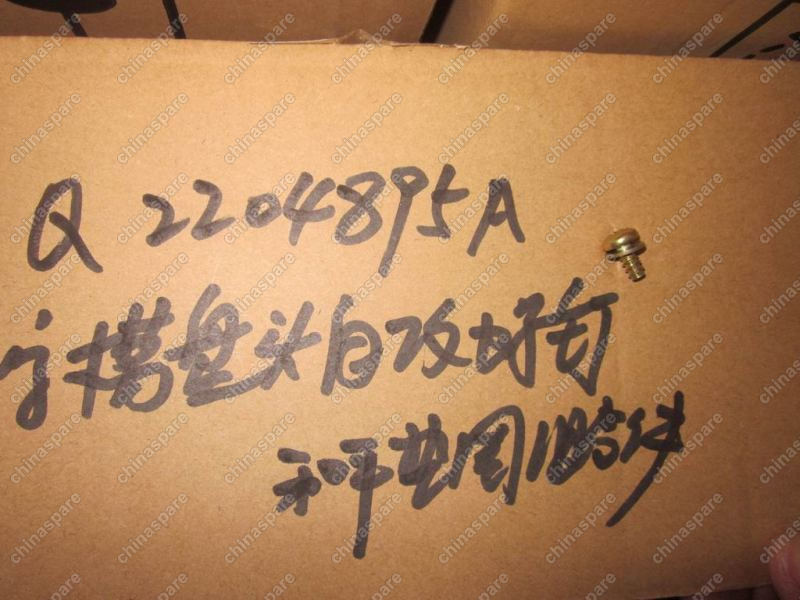 Q 2204895A
字槽盘头自攻螺钉
和平垫圈组合件
chinaspare